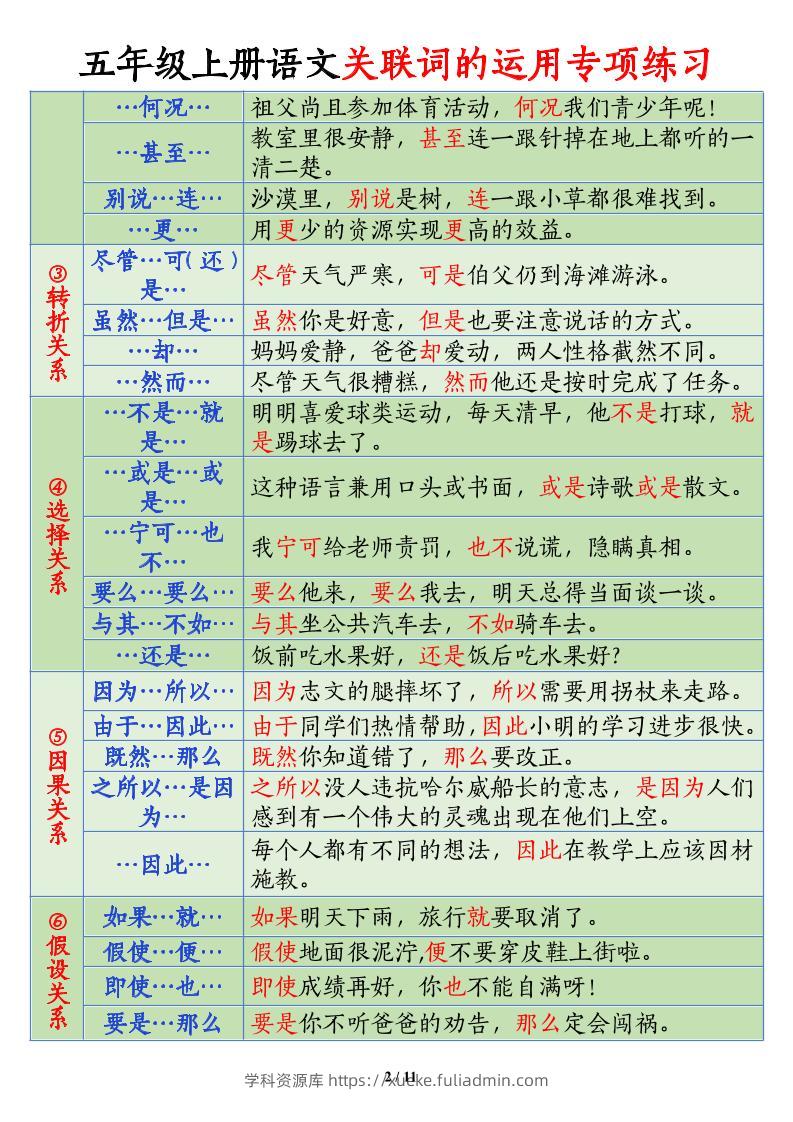 五年级上册语文关联词的运用专项练习
…何况…
祖父尚且参加体育活动，何况我们青少年呢！
…甚至…
教室里很安静，甚至连一跟针掉在地上都听的一
清二楚。
别说…连…
沙漠里，别说是树，连一跟小草都很难找到。
…更…
用更少的资源实现更高的效益。
③转折关系
尽管…可（还）
是…
尽管天气严寒，可是伯父仍到海滩游泳。
虽然…但是…
虽然你是好意，但是也要注意说话的方式。
…却…
妈妈爱静，爸爸却爱动，两人性格截然不同。
…然而…
尽管天气很糟糕，然而他还是按时完成了任务。
④选择关系
…不是…就
是…
明明喜爱球类运动，每天清早，他不是打球，就
是踢球去了。
…或是…或
是…
这种语言兼用口头或书面，或是诗歌或是散文。
…宁可…也
不…
我宁可给老师责罚，也不说谎，隐瞒真相。
要么…要么…
要么他来，要么我去，明天总得当面谈一谈。
与其…不如…
与其坐公共汽车去，不如骑车去。
…还是…
饭前吃水果好，还是饭后吃水果好？
⑤因果关系
因为…所以…
因为志文的腿摔坏了，所以需要用拐杖来走路。
由于…因此…
由于同学们热情帮助,因此小明的学习进步很快。
既然…那么
既然你知道错了，那么要改正。
之所以…是因
为…
之所以没人违抗哈尔威船长的意志，是因为人们
感到有一个伟大的灵魂出现在他们上空。
…因此…
每个人都有不同的想法，因此在教学上应该因材
施教。
⑥假设关系
如果…就…
如果明天下雨，旅行就要取消了。
假使…便…
假使地面很泥泞,便不要穿皮鞋上街啦。
即使…也…
即使成绩再好，你也不能自满呀！
要是…那么
要是你不听爸爸的劝告，那么定会闯祸。
2 / 11
学科资源库 https://xueke.fuliadmin.com